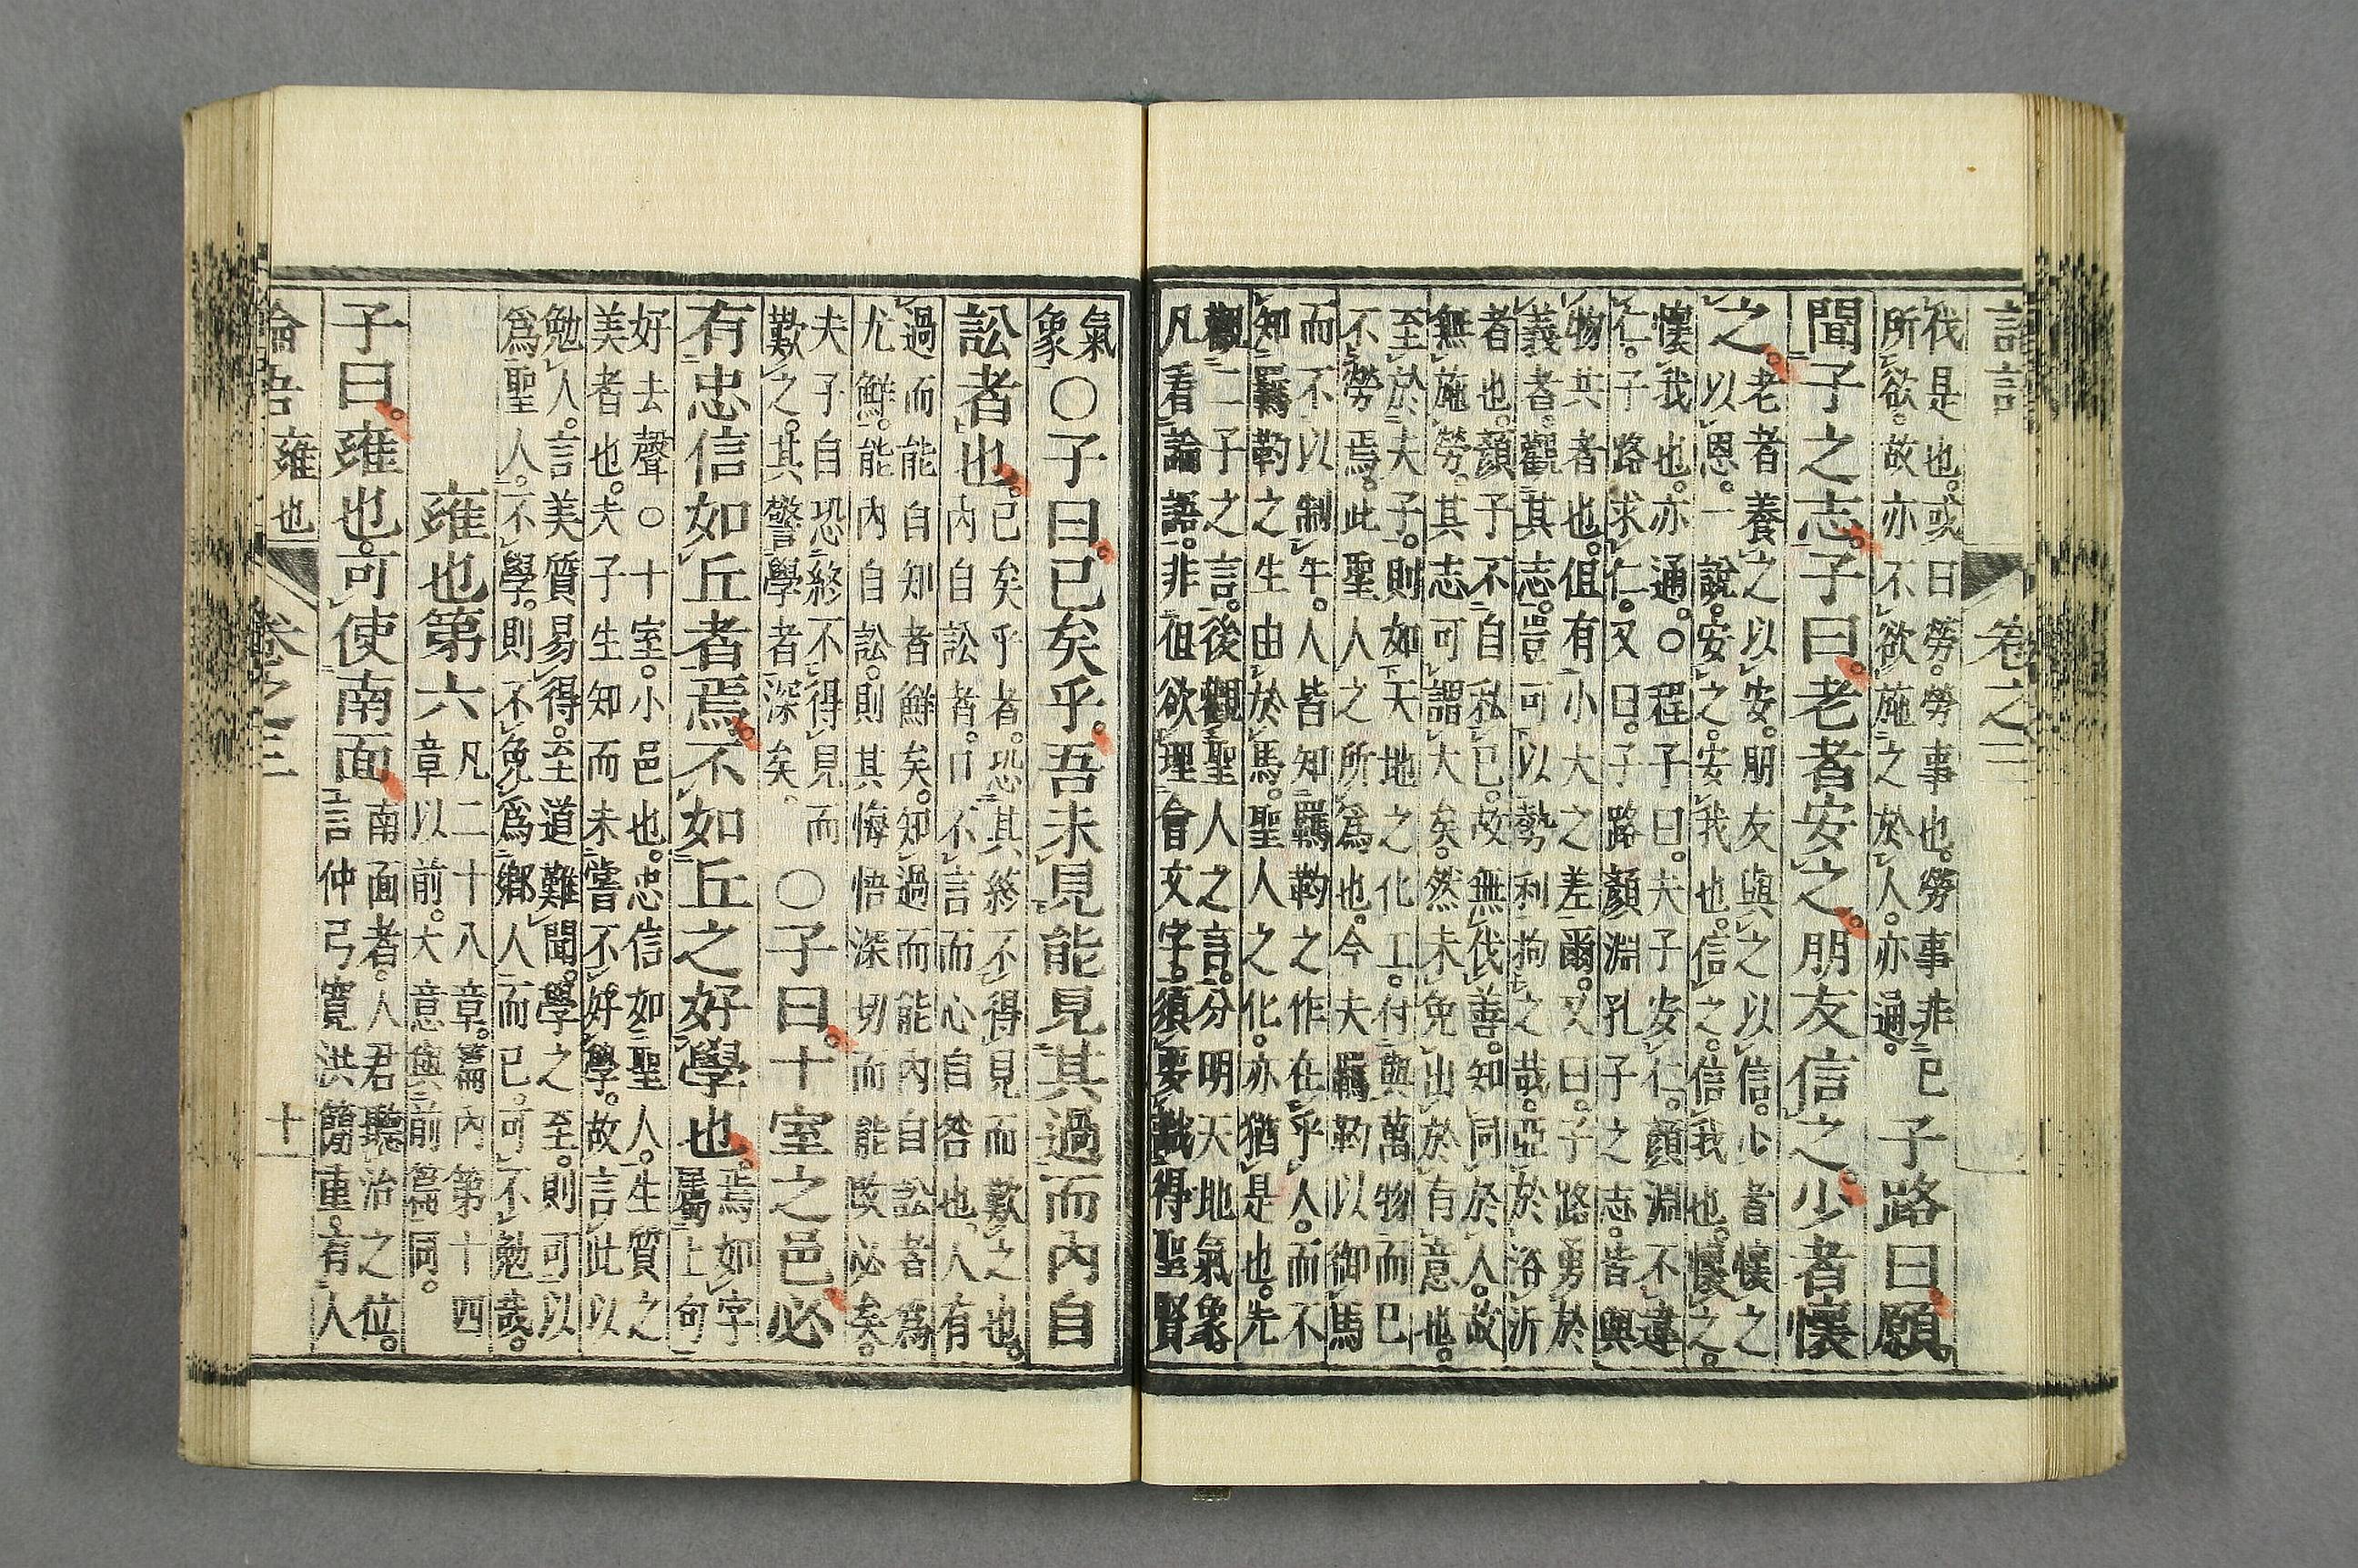 卷之三
伐是也。或曰。勞。勞事也。勞事非己
所欲。故亦不欲施之於人。亦通。
子路曰。願
聞子之志。子曰。老者安之。朋友信之。少者懷
之。
老者養之以安。朋友與之以信。少者懷之
以恩。一說。安之。安我也。信之。信我也。懷之。
懷我也。亦通。○程子曰。夫子安仁。顏淵不違
仁。子路求仁。又曰。子路顏淵孔子之志。皆與
物共者也。但有小大之差爾。又曰。子路勇於
義者。觀其志。豈可以勢利拘之哉。亞於浴沂
者也。顏子不自私己。故無伐善。知同於人。故
無施勞。其志可謂大矣。然未免出於有意也。
至於夫子。則如天地之化工。付與萬物而已
不勞焉。此聖人之所爲也。今夫羈靮以御馬
而不以制牛。人皆知羈靮之作在乎人。而不
知羈靮之生由於馬。聖人之化。亦猶是也。先
觀二子之言。後觀聖人之言。分明天地氣象。
凡看論語。非但欲理會文字。須要識得聖賢
氣
象
○子曰。已矣乎。吾未見能見其過而內自
訟者也。
已矣乎者。恐其終不得見而歎之也。
內自訟者。口不言而心自咎也。人有
過而能自知者鮮矣。知過而能內自訟者爲
尤鮮。能內自訟。則其悔悟深切而能改必矣。
夫子自恐終不得見而
歎之。其警學者深矣。
○子曰。十室之邑。必
有忠信如丘者焉。不如丘之好學也。
焉如字
屬上句
好去聲○十室。小邑也。忠信如聖人。生質之
美者也。夫子生知而未嘗不好學。故言此以
勉人。言美質易得。至道難聞。學之至。則可以
爲聖人。不學。則不免爲鄉人而已。可不勉哉。
雍也第六
凡二十八章。篇內第十四
章以前。大意與前篇同。
子曰。雍也。可使南面。
南面者。人君聽治之位。
言仲弓寬洪簡重。有人
論語 雍也 卷之三 十一